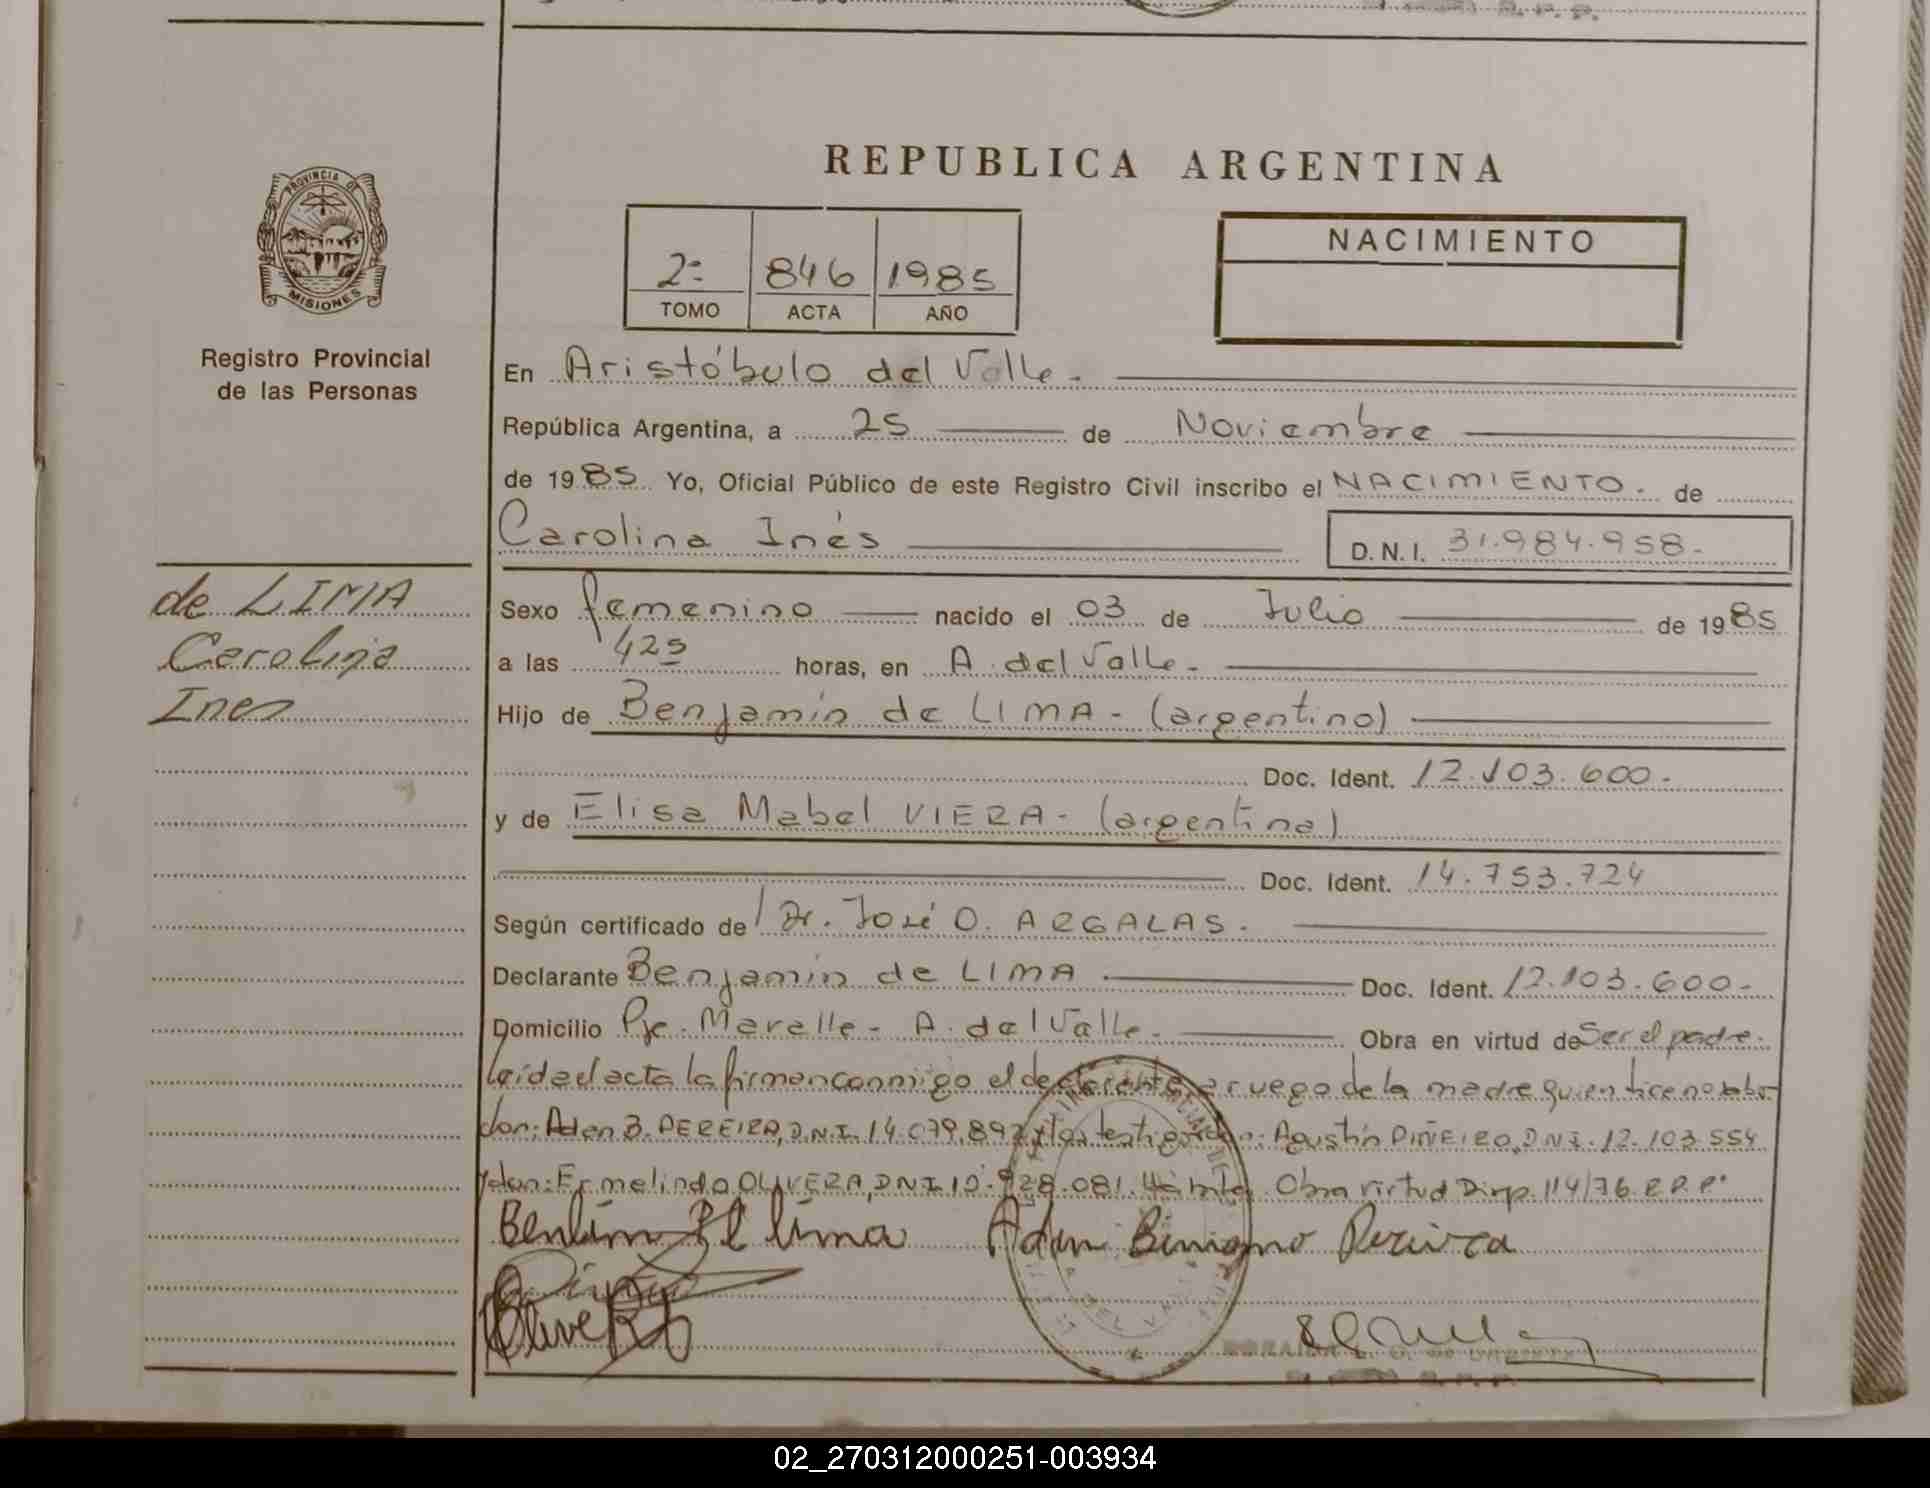 REPUBLICA ARGENTINA
PROVINCIA DE
MISIONES
Registro Provincial
de las Personas
2º 846 1985
TOMO ACTA AÑO
NACIMIENTO
En Aristóbulo del Valle.
República Argentina, a 25 de Noviembre
de 1985 Yo, Oficial Público de este Registro Civil inscribo el NACIMIENTO. de
Carolina Inés D.N.I. 31.984.958.
de LIMA
Carolina
Ines
Sexo femenino nacido el 03 de Julio de 1985
a las 425 horas, en A. del Valle.
Hijo de Benjamín de LIMA - (argentino)
Doc. Ident. 12.103.600.
y de Elisa Mabel VIERA - (argentina)
Doc. Ident. 14.753.724
Según certificado de Dr. José O. ARGALAS.
Declarante Benjamín de LIMA Doc. Ident. 12.103.600.
Domicilio Pje. Maralle - A. del Valle. Obra en virtud de Ser el padre.
Leída el acta la firman conmigo el declarante, a ruego de la madre quien
don: Aden B. PEREIRA, D.N.I. 14.079.892 y los testigos don: Agustín PIÑEIRO, D.N.I. 12.103.554
y don: Ermelindo OLIVERA, DNI 10.928.081. Obra virtud Disp. 114/76 R.P.P.
lima Aden Pereira
02_270312000251-003934